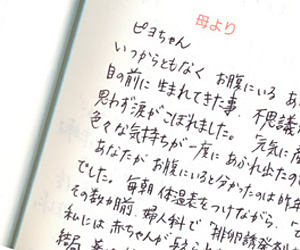 母より
ピヨちゃん
いつからともなく お腹にいる あ
目の前に 生まれてきた事、不思議
思わず涙がこぼれました。
色々な気持ちが一度に あふれ出たの
あなたが お腹にいると分かったのは昨年
でした。毎朝 体温表をつけながら、
その数か前、婦人科で「排卵誘発剤
私には赤ちゃんが